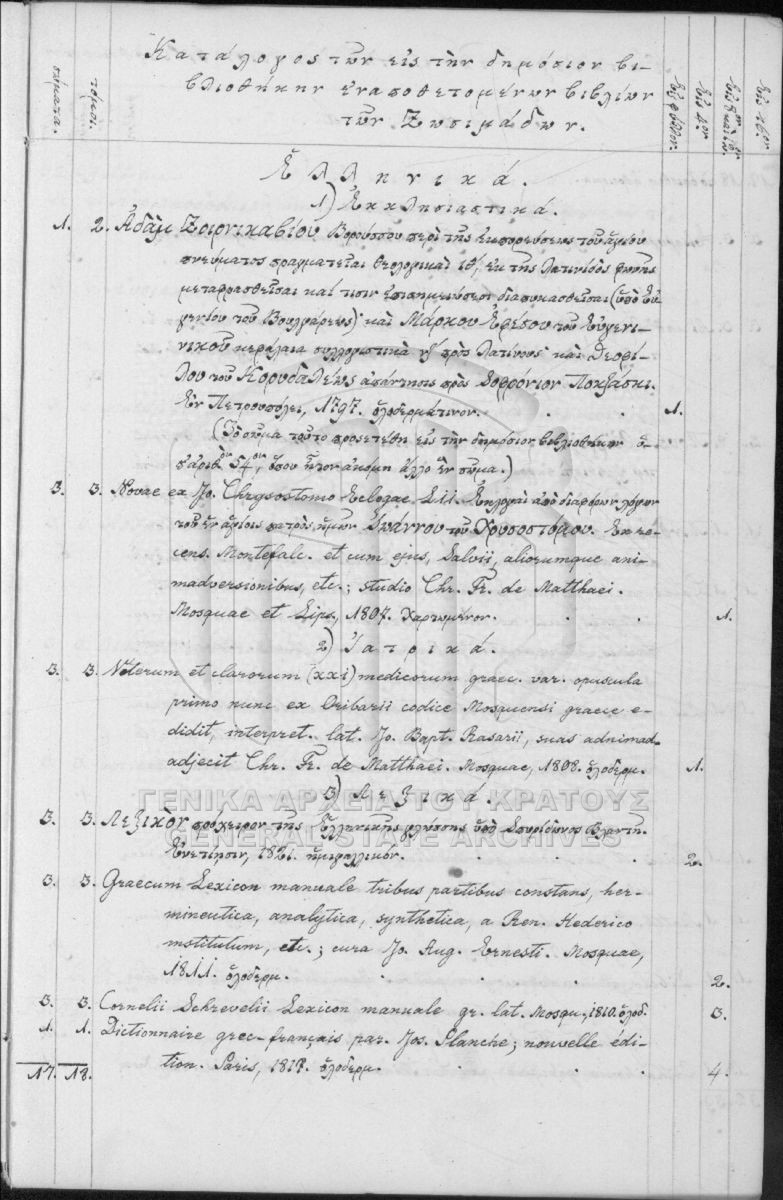 Κατάλογος τῶν εἰς τὴν δημόσιον βι-
βλιοθήκην ἐναποθετομένων βιβλίων
τῶν Ζωσιμάδων.
σώματα. τόμοι. εἰς φύλλον. εἰς 4.ον εἰς 8.ον καὶ 12.ον εἰς 16.ον
Ἑλληνικά.
1) Ἐκκλησιαστικά.
1. 2. Ἀδὰμ Ζοιρνικαβίου Βορούσσου περὶ τῆς ἐκπορεύσεως τοῦ ἁγίου
πνεύματος πραγματεῖαι θεολογικαὶ ιθ΄, ἐκ τῆς Λατινίδος φωνῆς
μεταφρασθεῖσαι καί τισιν ἐπισημειώσεσι διαπυκασθεῖσαι (ὑπὸ Εὐ-
γενίου τοῦ Βουλγάρεως)· καὶ Μάρκου Ἐφέσου τοῦ Εὐγενι-
νικοῦ κεφάλαια συλλογιστικὰ πρὸς Λατίνους· καὶ Θεοφί-
λου τοῦ Κορυδαλέως ἀπάντησις πρὸς Σοφρόνιον Ποκζάσκι.
Ἐν Πετρουπόλει, 1797. ὁλοδερμάτινον. . . 1.
(Τὸ σῶμα τοῦτο προσετέθη εἰς τὴν δημόσιον βιβλιοθήκην ὑ-
π' ἀριθ.ὸν 54.ον, ὅπου ἦτον ἀκόμη ἄλλο ἓν σῶμα.)
3. 3. Novae ex Jo. Chrysostomo Eclogae LII. Ἐκλογαὶ ἀπὸ διαφόρων λόγων
τοῦ ἐν ἁγίοις πατρὸς ἡμῶν Ἰωάννου τοῦ Χρυσοστόμου. Ex re-
cens. Montefalc. et cum ejus, Salvii, aliorumque ani-
madversionibus, etc.; studio Chr. Fr. de Matthaei.
Mosquae et Lips., 1807. Χαρτωμένον. . . 1.
2) Ἰατρικά.
3. 3. Veterum et clarorum (xxi) medicorum graec. var. opuscula
primo nunc ex Oribasii codice Mosquensi graece e-
didit, interpret. lat. Jo. Bapt. Rasarii, suas adnimad.
adjecit Chr. Fr. de Matthaei. Mosquae, 1808. ὁλοδερμ. 1.
3) Λεξικά.
3. 3. Λεξικὸν πρόχειρον τῆς Ἑλληνικῆς γλώσσης ὑπὸ Σπυρίδωνος Βλαντῆ.
Ἐνετίησιν, 1821. ἡμιγαλλικόν. . . . 2.
3. 3. Graecum Lexicon manuale tribus partibus constans, her-
mineutica, analytica, synthetica, a Ben. Hederico
institutum, etc.; cura Jo. Aug. Ernesti. Mosquae,
1811. ὁλοδερμ. . . . . 2.
3. 3. Cornelii Schrevelii Lexicon manuale gr. lat. Mosqu., 1810. ὁλοδ. 3.
1. 1. Dictionnaire grec-français par. Jos. Planche; nouvelle édi-
17. 18. tion. Paris, 1817. ὁλοδερμ. . . . 4.
ΓΕΝΙΚΑ ΑΡΧΕΙΑ ΤΟΥ ΚΡΑΤΟΥΣ
GENERAL STATE ARCHIVES